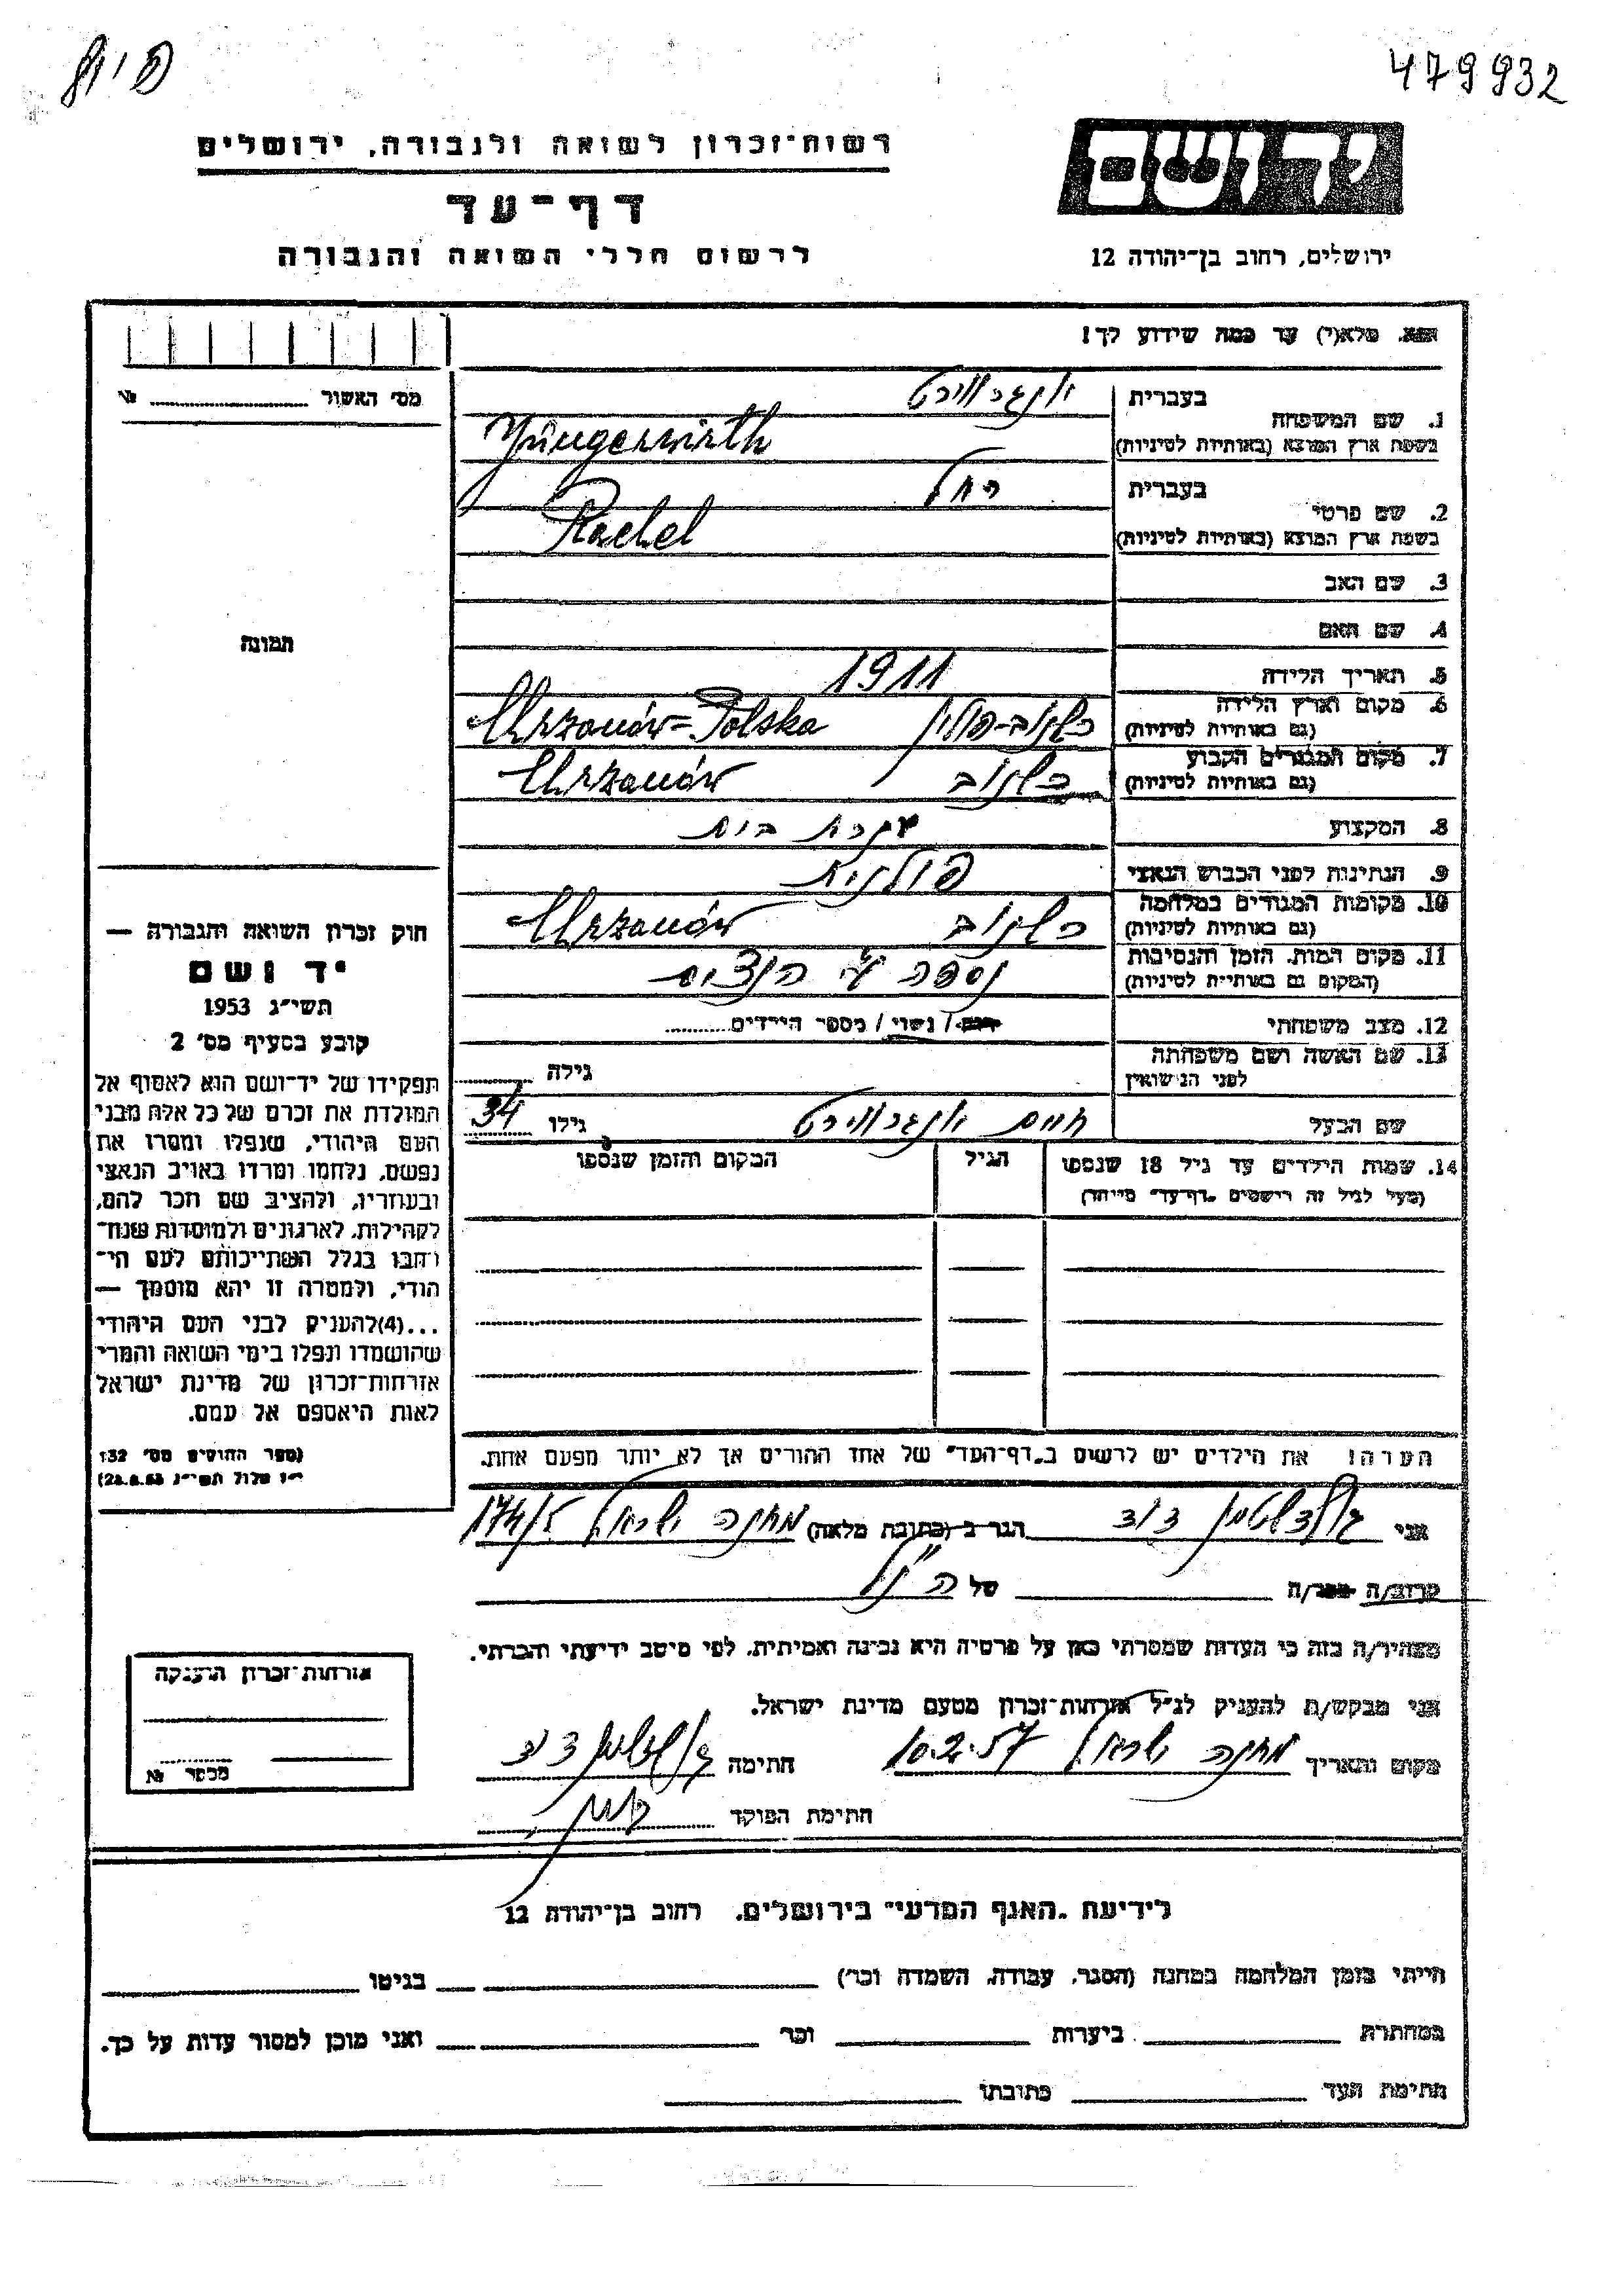 479932
רשות־זכרון לשואה ולגבורה, ירושלים
יד ושם
דף־עד
לרשום חללי השואה והגבורה
ירושלים, רחוב בן־יהודה 12
נא. מלא(י) עד כמה שידוע לך!
מס׳ האשור № 
1. שם המשפחה
בעברית
יונגרווירט
בשפת ארץ המוצא (באותיות לטיניות)
Yüngerwirth
2. שם פרטי
בעברית
רחל
בשפת ארץ המוצא (באותיות לטיניות)
Rachel
3. שם האב
4. שם האם
תמונה
5. תאריך הלידה 1911
6. מקום וארץ הלידה
(גם באותיות לטיניות)
כשנוב-פולין Chrzanów-Polska
7. מקום המגורים הקבוע
(גם באותיות לטיניות)
כשנוב Chrzanów
8. המקצוע עקרת בית
9. הנתינות לפני הכבוש הנאצי פולנית
10. מקומות המגורים במלחמה
(גם באותיות לטיניות)
כשנוב Chrzanów
11. מקום המות, הזמן והנסיבות
(המקום גם באותיות לטיניות)
נספה ע״י הנצים
12. מצב משפחתי / נשוי / מספר הילדים
13. שם האשה ושם משפחתה
לפני הנישואין
גילה
שם הבעל חיים יונגרווירט גילו 34
14. שמות הילדים עד גיל 18 שנספו
(מעל לגיל זה רושמים „דף־עד״ מיוחד)
הגיל
המקום והזמן שנספו
חוק זכרון השואה והגבורה —
יד ושם
תשי״ג 1953
קובע בסעיף מס׳ 2
תפקידו של יד־ושם הוא לאסוף אל
המולדת את זכרם של כל אלה מבני
העם היהודי, שנפלו ומסרו את
נפשם, נלחמו ומרדו באויב הנאצי
ובעוזריו, ולהציב שם וזכר להם,
לקהילות, לארגונים ולמוסדות שנח־
רבו בגלל השתייכותם לעם הי־
הודי, ולמטרה זו יהא מוסמך —
...(4)להעניק לבני העם היהודי
שהושמדו ונפלו בימי השואה והמרי
אזרחות־זכרון של מדינת ישראל
לאות היאספם אל עמם.
(ספר החוקים מס׳ 132
י״ז אלול תשי״ג 28.8.53)
הערה! את הילדים יש לרשום ב„דף־העד״ של אחד ההורים אך לא יותר מפעם אחת.
אני גולדשטיין דוד הגר ב (כתובת מלאה) מחנה ישראל 174/5
קרוב/ה מכר/ה של הנ״ל
מצהיר/ה בזה כי העדות שמסרתי כאן על פרטיה היא נכונה ואמיתית, לפי מיטב ידיעתי והכרתי.
אני מבקש/ת להעניק לנ״ל אזרחות־זכרון מטעם מדינת ישראל.
מקום ותאריך מחנה ישראל 10.2.57 חתימה גולדשטיין דוד
חתימת הפוקד
אזרחות־זכרון הוענקה
מספר №
לידיעת „האגף המדעי״ בירושלים, רחוב בן־יהודה 12
הייתי בזמן המלחמה במחנה (הסגר, עבודה, השמדה וכו׳) בגיטו
במחתרת ביערות וכו׳ ואני מוכן למסור עדות על כך.
חתימת העד כתובתו